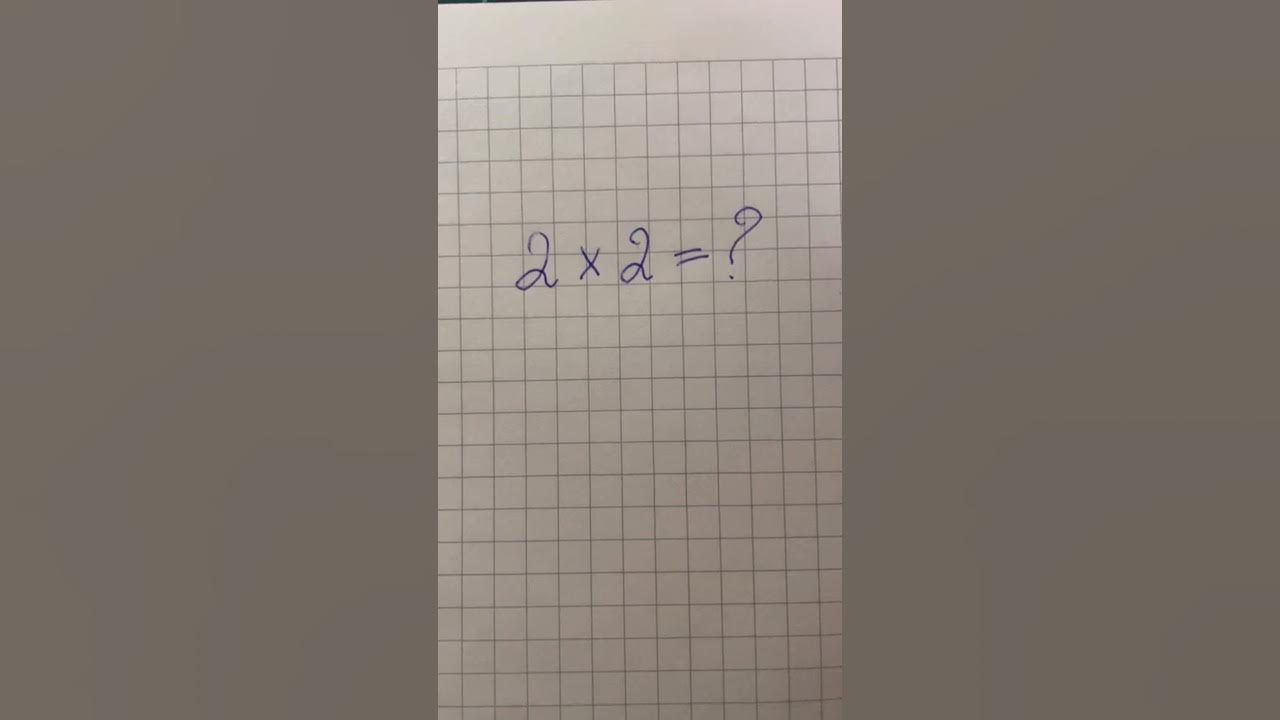 2 × 2 = ?